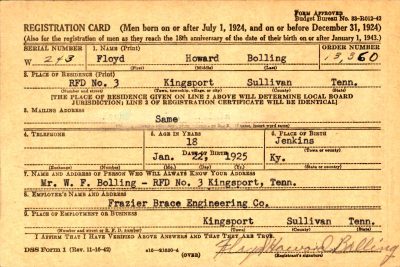 FORM APPROVED
Budget Bureau No. 33-R012-42
REGISTRATION CARD (Men born on or after July 1, 1924, and on or before December 31, 1924)
(Also for the registration of men as they reach the 18th anniversary of the date of their birth on or after January 1, 1943.)
SERIAL NUMBER 1. NAME (Print) ORDER NUMBER
W 243 Floyd Howard Bolling 13,360
(First) (Middle) (Last)
2. PLACE OF RESIDENCE (Print)
RFD No. 3 Kingsport Sullivan Tenn.
(Number and street) (Town, township, village, or city) (County) (State)
[THE PLACE OF RESIDENCE GIVEN ON LINE 2 ABOVE WILL DETERMINE LOCAL BOARD
JURISDICTION; LINE 2 OF REGISTRATION CERTIFICATE WILL BE IDENTICAL]
3. MAILING ADDRESS
Same
4. TELEPHONE 5. AGE IN YEARS 6. PLACE OF BIRTH
18 Jenkins
DATE OF BIRTH (Town or county)
Jan. 22, 1925 Ky.
(Exchange) (Number) (Mo.) (Day) (Yr.) (State or country)
7. NAME AND ADDRESS OF PERSON WHO WILL ALWAYS KNOW YOUR ADDRESS
Mr. W. F. Bolling - RFD No. 3 Kingsport, Tenn.
8. EMPLOYER'S NAME AND ADDRESS
Frazier Brace Engineering Co.
9. PLACE OF EMPLOYMENT OR BUSINESS
Kingsport Sullivan Tenn.
(Number and street or R. F. D. number) (Town) (County) (State)
I AFFIRM THAT I HAVE VERIFIED ABOVE ANSWERS AND THAT THEY ARE TRUE.
DSS Form 1 (Rev. 11-16-42) (OVER) Floyd Howard Bolling
(Registrant's signature)